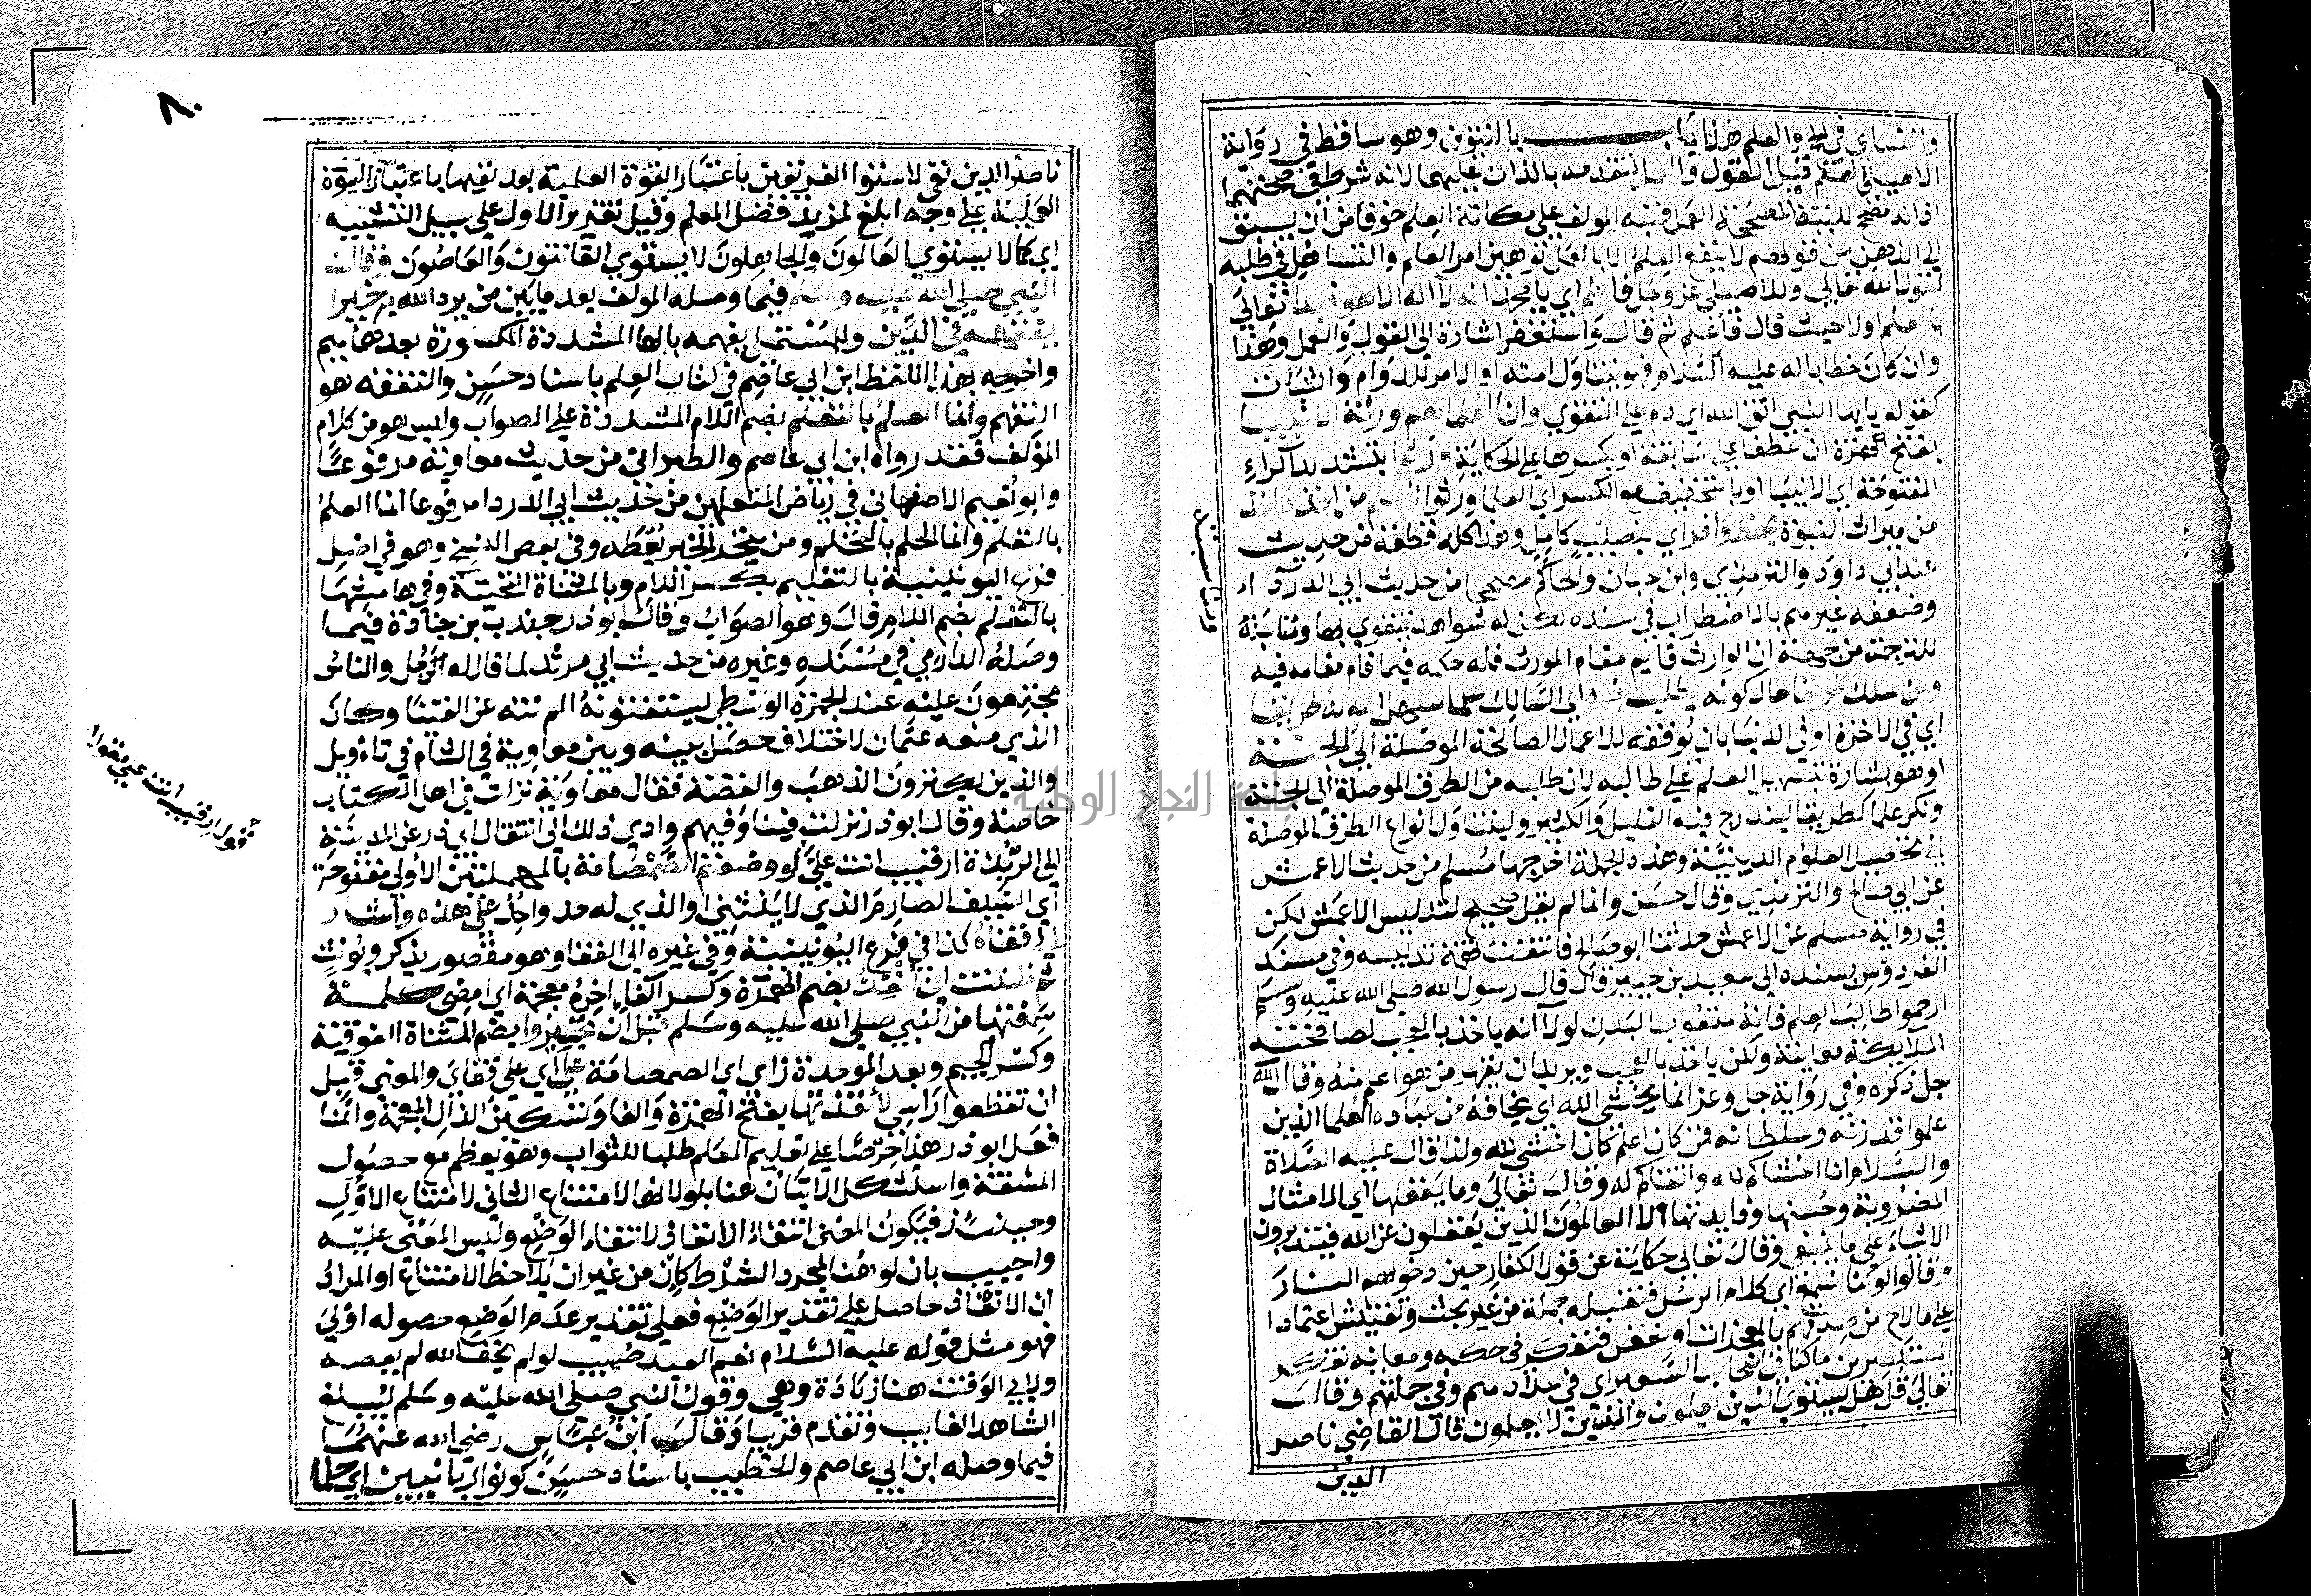 والنساي في والعلم هذا باب بالتنوين وهو ساقط في رواية
الاصيلي العلم قبل القول والعمل لتقدمه بالذات عليهما لانه شرط في صحتهما
اذ انه مصحح للنية المصححة للعمل فنبه المولف على مكانة العلم خوفا من ان يسبق
الى الذهن من قولهم لا ينفع العلم الا بالعمل توهين امر العلم والتساهل في طلبه
لقول الله تعالى وللاصيلي عز وجل فاعلم اي يا محمد انه لا اله الا الله فبدا تعالى
بالعلم اولا حيث قال فاعلم ثم قال واستغفر اشارة الى القول والعمل وهذا
وان كان خطابا له عليه السلام فهو يتناول امته او الامر للدوام والثبات
كقوله يايها النبي اتق الله اي دم على التقوي وان العلما هم ورثة الانبيا
بفتح الهمزة ان عطفا على سابقه او بكسرها على الحكاية ورثوا بتشديد الراء
المفتوحة اي الانبيا او بالتخفيف مع الكسر اي العلما ورثوا العلم من اخذه اخذ
من ميراث النبوة بحظ وافر اي بنصيب كامل وهذا كله قطعة من حديث
عند ابي داود والترمذي وابن حبان والحاكم مصححا من حديث ابي الدرداء
وضعفه غيرهم بالاضطراب في سنده لكن له شواهد يتقوي بها ومناسبته
للترجمة من جهة ان الوارث قايم مقام المورث فله حكمه فيما قام مقامه فيه
ومن سلك طريقا حال كونه يطلب به اي السالك علما سهل الله له طريقا
اي في الاخرة او في الدنيا بان يوفقه للاعمال الصالحة الموصلة الى الجنة
او هو بشارة بتسهيل العلم على طالبه لان طلبه من الطرق الموصلة الى الجنة
ونكر علما كطريقا ليندرج فيه القليل والكثير وليتناول انواع الطرق الموصلة
الى تحصيل العلوم الدينية وهذه الجملة اخرجها مسلم من حديث الاعمش
عن ابي صالح والترمذي وقال حسن وانما لم يقل صحيح لتدليس الاعمش لكن
في رواية مسلم عن الاعمش حدثنا ابو صالح فانتفت تهمة تدليسه وفي مسند
الفردوس بسنده الى سعيد بن جبير قال قال رسول الله صلى الله عليه وسلم
ارحموا طالب العلم فانه متعوب البدن لولا انه ياخذ بالعجب لصافحته
الملايكة معاينة ولكن ياخذ بالعجب ويريد ان يقهر من هو اعلم منه وقال الله
جل ذكره وفي رواية جل وعز انما يخشى الله اي يخافه من عباده العلما الذين
علموا قدرته وسلطانه فمن كان اعلم كان اخشى لله ولذا قال عليه الصلاة
والسلام انا اخشاكم لله واتقاكم له وقال تعالى وما يعقلها اي الامثال
المضروبة وحسنها وفايدتها الا العالمون الذين يعقلون عن الله فيتدبرون
الاشياء على ما ينبغي وقال تعالى حكاية عن قول الكفار حين دخولهم النار
وقالوا لو كنا نسمع اي كلام الرسل فنقبله جملة من غير بحث وتفتيش اعتمادا
على ما لاح من صدقهم بالمعجزات او نعقل فنفكر في حكمه ومعانيه تفكر
المستبصرين ما كنا في اصحاب السعير اي في عدادهم وفي جملتهم وقال
تعالى قل هل يستوي الذين يعلمون والذين لا يعلمون قال القاضي ناصر
الدين
٨٠
ناصر الدين نفى لاستوا الفريقين باعتبار القوة العلمية بعد نفيها باعتبار القوة
العملية على وجه ابلغ لمزيد فضل العلم وقيل تقرير الاول على سبيل التشبيه
اي كما لا يستوي العالمون والجاهلون لا يستوي القانتون والعاصون وقال
النبي صلى الله عليه وسلم فيما وصله المولف بعد بابين من يرد الله به خيرا
يفقهه في الدين وللمستملي يفهمه بالها المشددة المكسورة بعدها ميم
واخرجه بهذا اللفظ ابن ابي عاصم في كتاب العلم باسناد حسن والتفقه هو
التفهم وانما العلم بالتعلم بضم اللام المشددة على الصواب وليس هو من كلام
المولف فقد رواه ابن ابي عاصم والطبراني من حديث معاوية مرفوعا
وابو نعيم الاصفهاني في رياض المتعلمين من حديث ابي الدردا مرفوعا انما العلم
بالتعلم وانما الحلم بالتحلم ومن يتحر الخير يعطه وفي بعض النسخ وهو في اصل
فرع اليونينية بالتعليم بكسر اللام وبالمثناة التحتية وفي هامشها
بالتعلم بضم اللام قال وهو الصواب وقال ابو ذر جندب بن جنادة فيما
وصله الدارمي في مسنده وغيره من حديث ابي مرثد لما قال له الرجل والناس
مجتمعون عليه عند الجمرة الوسطى يستفتونه الم تنته عن الفتيا وكان
الذي منعه عثمان لاختلاف حصل بينه وبين معاوية في الشام في تاويل
والذين يكنزون الذهب والفضة فقال معاوية نزلت في اهل الكتاب
خاصة وقال ابو ذر نزلت فينا وفيهم وادي ذلك الى انتقال ابي ذر عن المدينة
الى الربذة ارقيب انت علي لو وضعتم الصمصامة بالمهملتين الاولى مفتوحة
اي السيف الصارم الذي لا ينثني او الذي له حد واحد على هذه واشار
الى قفاه كذا في فرع اليونينية وفي غيره الى القفا وهو مقصور يذكر ويونث
ثم ظننت اني انفذ بضم الهمزة وكسر الفاء اخره معجمة اي امضي كلمة
سمعتها من النبي صلى الله عليه وسلم قبل ان تجيزوا بضم المثناة الفوقية
وكسر الجيم وبعد الموحدة زاي اي الصمصامة علي اي على قفاي والمعنى قبل
ان تقطعوا راسي لانفذتها بفتح الهمزة والفا وتسكين الذال المعجمة وانما
فعل ابو ذر هذا حرصا على تعليم العلم طلبا للثواب وهو يعظم مع حصول
المشقة واستشكل الاتيان هنا بلو لانها لامتناع الثاني لامتناع الاول
وحينئذ فيكون المعنى انتفاء الانفاذ لانتفاء الوضع وليس المعنى عليه
واجيب بان لو هنا لمجرد الشرط كان من غير ان يلاحظ الامتناع او المراد
ان الانفاذ حاصل على تقدير الوضع فعلى تقدير عدم الوضع حصوله اولى
فهو مثل قوله عليه السلام نعم العبد صهيب لو لم يخف الله لم يعصه
ولابي الوقت هنا زيادة وهي وقول النبي صلى الله عليه وسلم ليبلغ
الشاهد الغايب وتقدم قريبا وقال ابن عباس رضي الله عنهما
فيما وصله ابن ابي عاصم والخطيب باسناد حسن كونوا ربانيين اي حلما
قوله ارقيب انت علي مقول
جامعة النجاح الوطنية